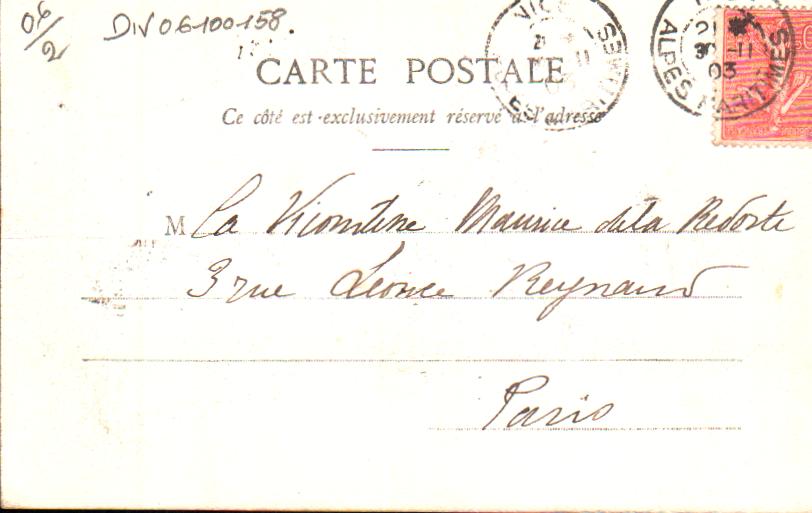 06/2
DIV06100158.
CARTE POSTALE
Ce côté est exclusivement réservé à l'adresse
M La Vicomtesse Maurice de la Redorte
3 rue Léonce Reynaud
Paris
NICE
21
11
21 *
30 -11
03
ALPES MARITIMES